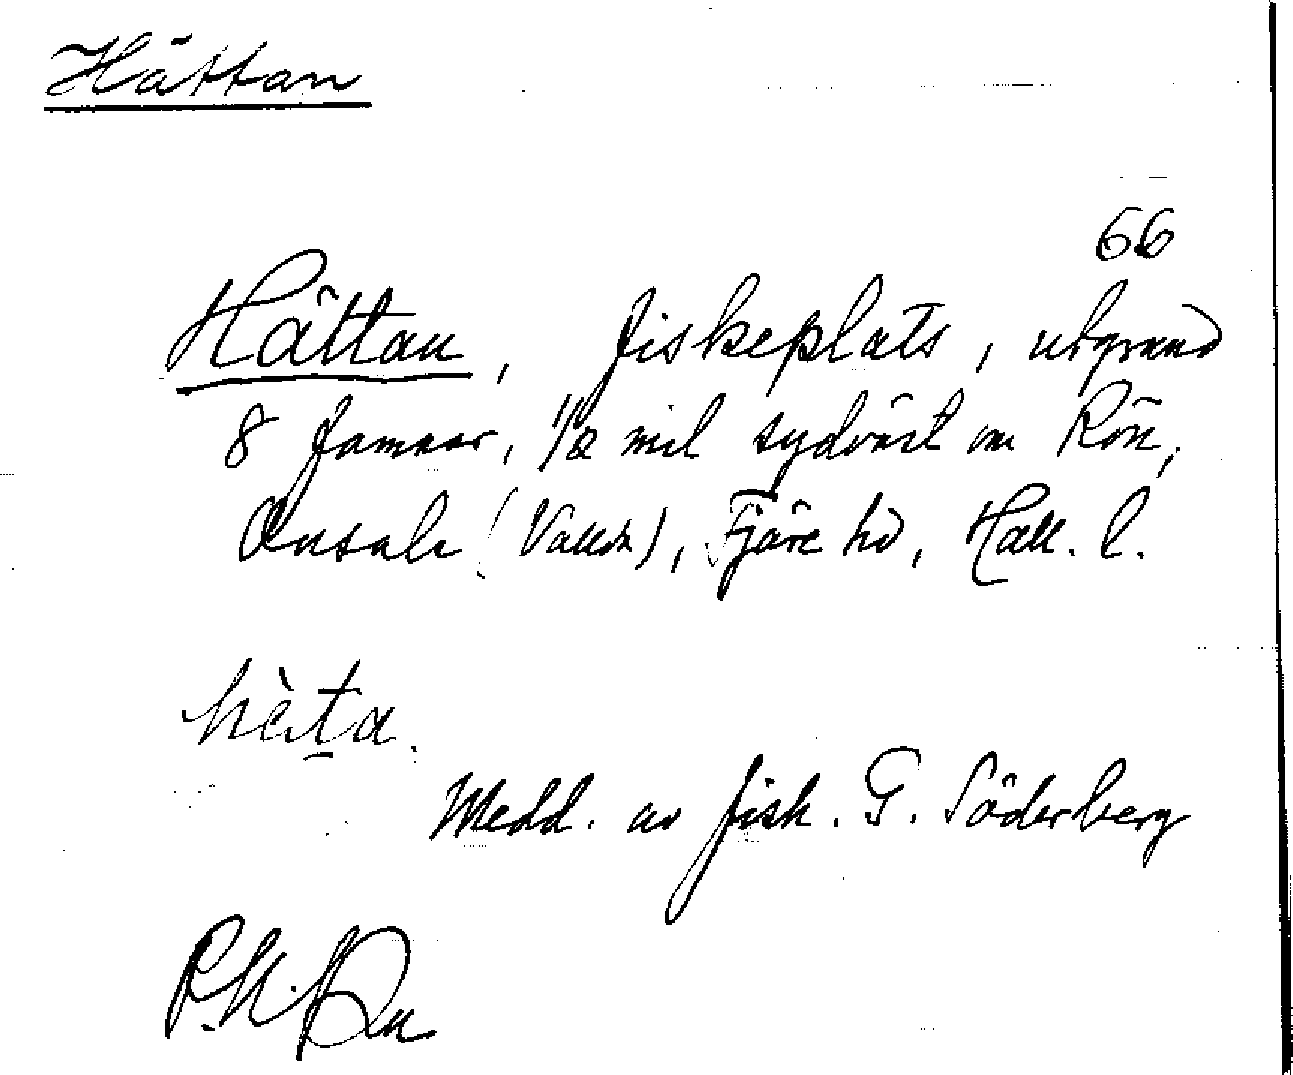 Hättan
66
Hättan, fiskeplats, utgrund
8 famnar, 1/2 mil sydväst om Rön,
Onsala (Vallda), Fjäre hd, Hall. l.
hèta.
Medd. av fisk. G. Söderberg